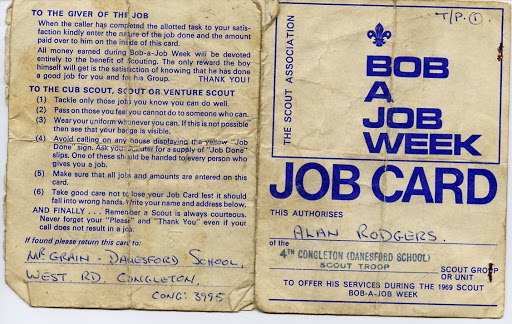 TO THE GIVER OF THE JOB
When the caller has completed the allotted task to your satis-
faction kindly enter the nature of the job done and the amount
paid over to him on the inside of this card.
All money earned during Bob-a-Job Week will be devoted
entirely to the benefit of Scouting. The only reward the boy
himself will get is the satisfaction of knowing that he has done
a good job for you and for his Group. THANK YOU!
TO THE CUB SCOUT, SCOUT OR VENTURE SCOUT
(1) Tackle only those jobs you know you can do well.
(2) Pass on those you feel you cannot do to someone who can.
(3) Wear your uniform whenever you can. If this is not possible
then see that your badge is visible.
(4) Avoid calling on any house displaying the yellow "Job
Done" sign. Ask your Leader for a supply of "Job Done"
slips. One of these should be handed to every person who
gives you a job.
(5) Make sure that all jobs and amounts are entered on this
card.
(6) Take good care not to lose your Job Card lest it should
fall into wrong hands. Write your name and address below.
AND FINALLY . . . Remember a Scout is always courteous.
Never forget your "Please" and "Thank You" even if your
call does not result in a job.
If found please return this card to:
Mr GRAIN. DANESFORD SCHOOL,
WEST. RD. CONGLETON.
CONG: 3995
T/P. ①.
THE SCOUT ASSOCIATION
BOB
A
JOB
WEEK
JOB CARD
THIS AUTHORISES
ALAN RODGERS.
of the 4TH CONGLETON (DANESFORD SCHOOL)
SCOUT TROOP
SCOUT GROUP
OR UNIT
TO OFFER HIS SERVICES DURING THE 1969 SCOUT
BOB-A-JOB WEEK